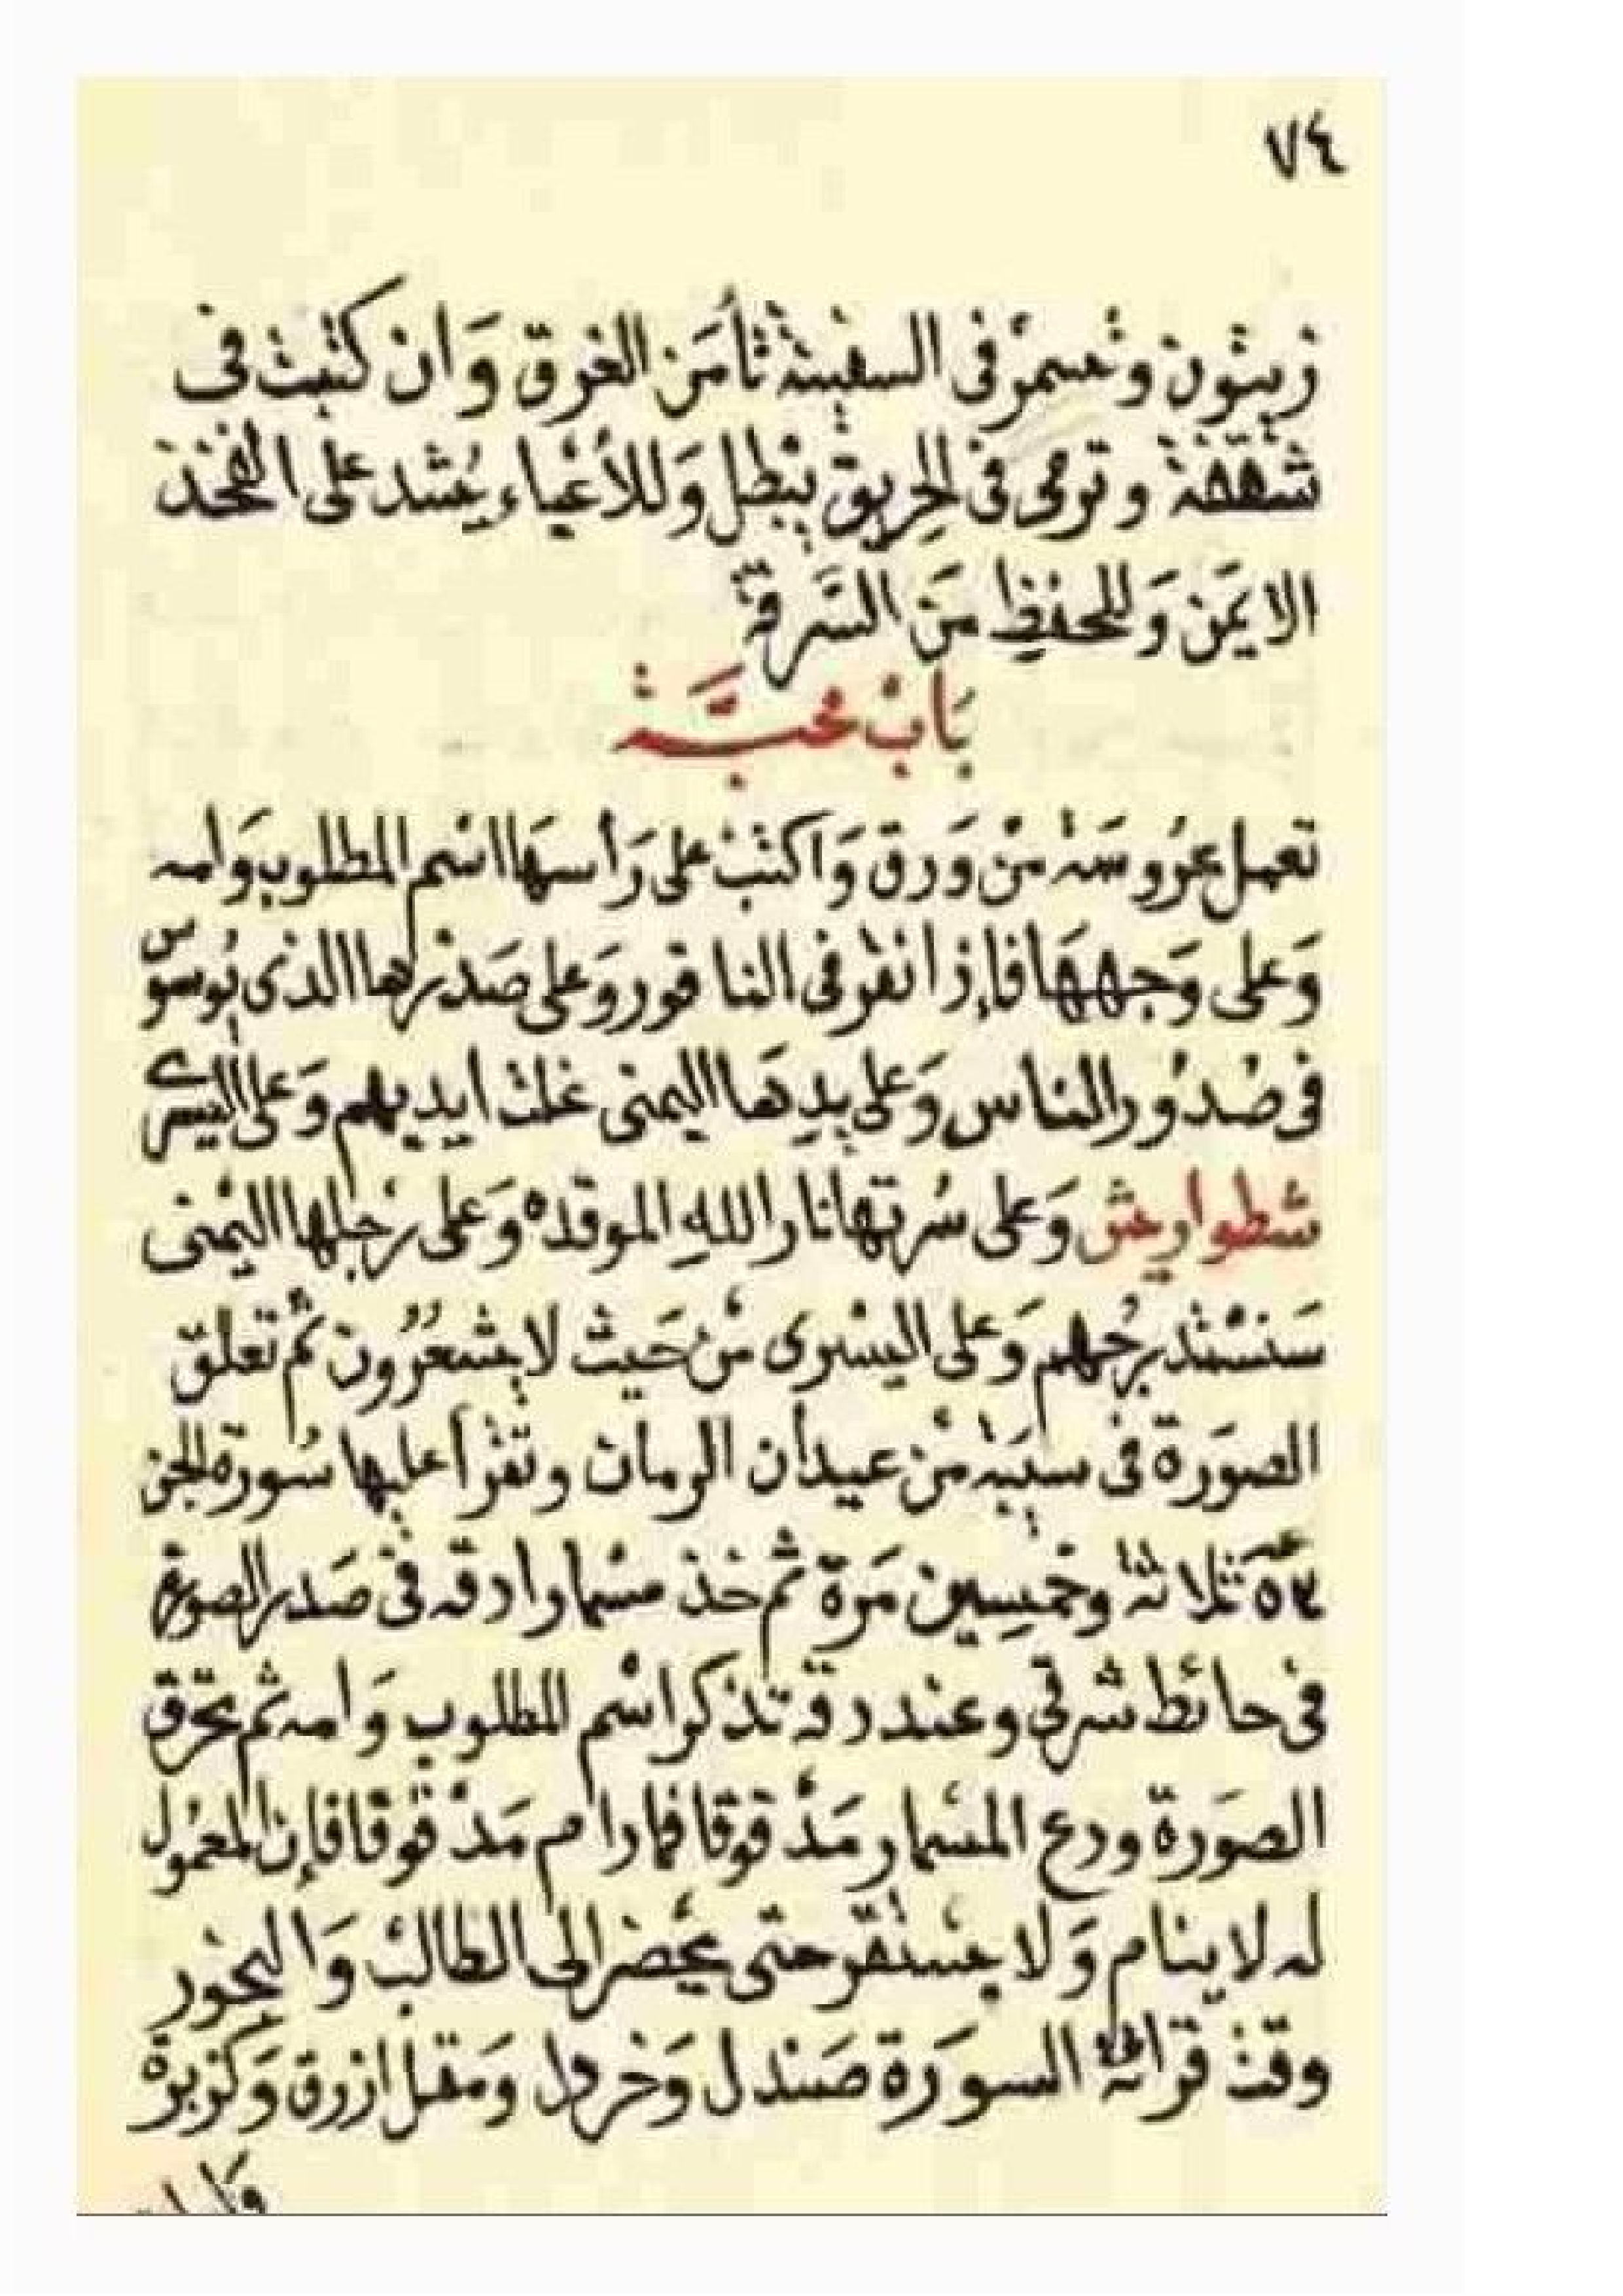 ٧٤
زيتون وتسمر فى السفينة تأمن الغرق وان كتبت فى
شقفة وترمى فى الحريق يبطل وللأعياء يشد على الفخذ
الايمن وللحفظ من السرقة
باب محبة
تعمل عروسة من ورق واكتب على رأسها اسم المطلوب وامه
وعلى وجهها فإذا نقر فى الناقور وعلى صدرها الذى يوسوس
فى صدور الناس وعلى يدها اليمنى غلت ايديهم وعلى اليسرى
شطوايش وعلى سرتها نار الله الموقدة وعلى رجلها اليمنى
سنستدرجهم وعلى اليسرى من حيث لا يشعرون ثم تعلق
الصورة فى سيبه من عيدان الرمان وتقرأ عليها سورة الجن
٥٣ ثلاثة وخمسين مرة ثم خذ مسمارا دقه فى صدر الصورة
فى حائط شرقى وعند دقه تذكر اسم المطلوب وامه ثم تحرق
الصورة ودع المسمار مدقوقا فما دام مدقوقا فإن المعمول
له لا ينام ولا يستقر حتى يحضر الى الطالب والبخور
وقت قرائة السورة صندل وخردل ومقل ازرق وكزبرة